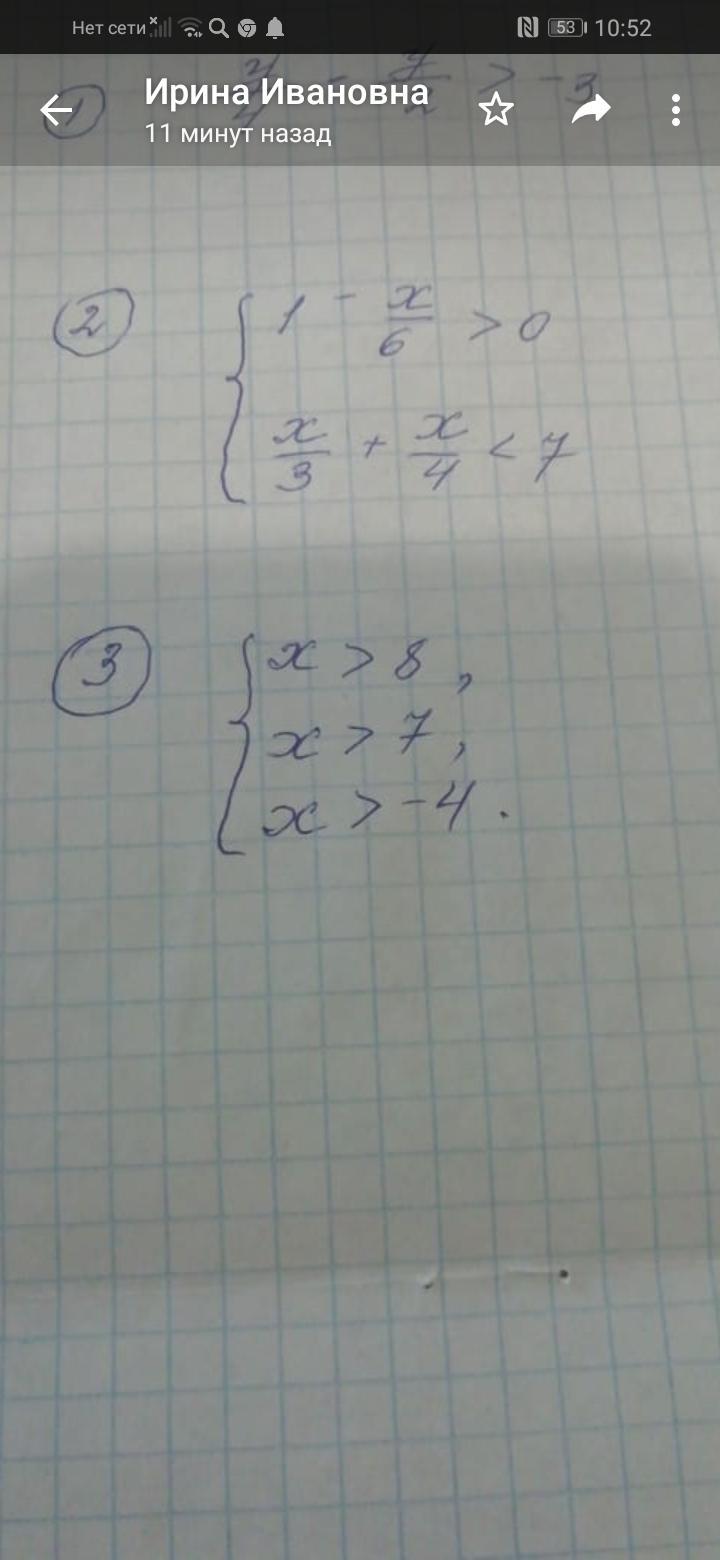 Нет сети 53 10:52
Ирина Ивановна
11 минут назад
① y/4 - y/2 > -3
② { 1 - x/6 > 0
x/3 + x/4 < 7
③ { x > 8,
x > 7,
x > -4.